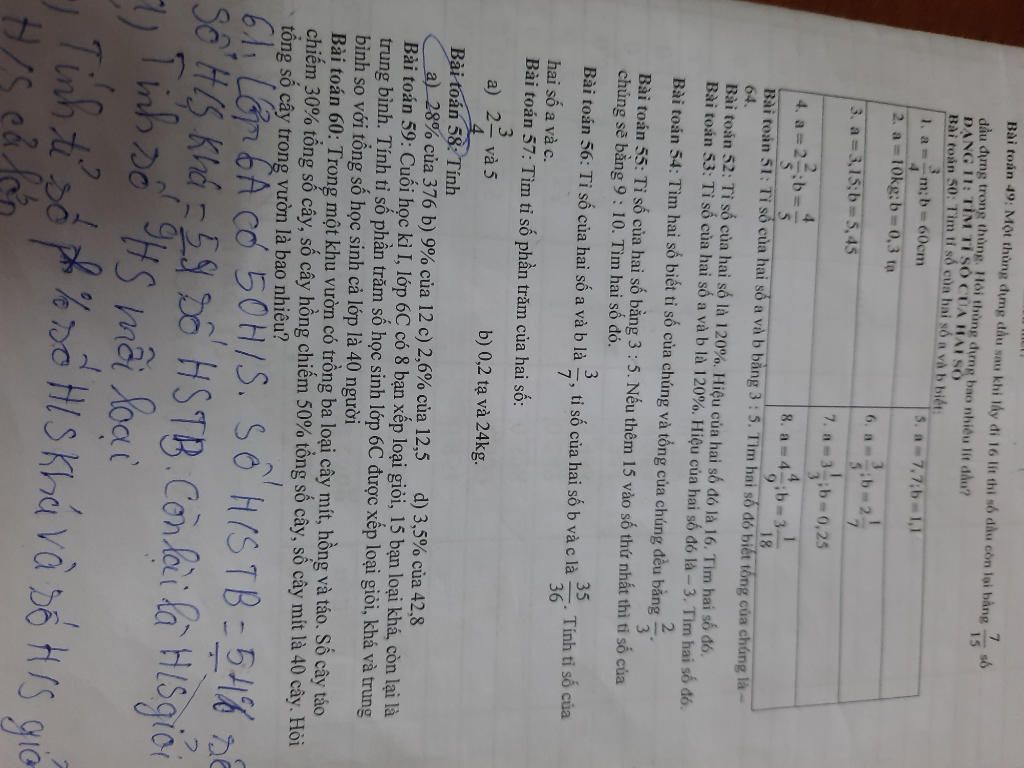 Bài toán 49: Một thùng đựng dầu sau khi lấy đi 16 lít thì số dầu còn lại bằng 7/15 số
dầu đựng trong thùng. Hỏi thùng đựng bao nhiêu lít dầu?
DẠNG 11: TÌM TỈ SỐ CỦA HAI SỐ
Bài toán 50: Tìm tỉ số của hai số a và b biết:
1. a = 3/4 m; b = 60cm
5. a = 7,7; b = 1,1
2. a = 10kg; b = 0,3 tạ
6. a = 3/5; b = 2 1/7
3. a = 3,15; b = 5,45
7. a = 3 1/3; b = 0,25
4. a = 2 2/5; b = 4/5
8. a = 4 4/9; b = 3 1/18
Bài toán 51: Tỉ số của hai số a và b bằng 3 : 5. Tìm hai số đó biết tổng của chúng là –
64.
Bài toán 52: Tỉ số của hai số là 120%. Hiệu của hai số đó là 16. Tìm hai số đó.
Bài toán 53: Tỉ số của hai số a và b là 120%. Hiệu của hai số đó là – 3. Tìm hai số đó.
Bài toán 54: Tìm hai số biết tỉ số của chúng và tổng của chúng đều bằng 2/3.
Bài toán 55: Tỉ số của hai số bằng 3 : 5. Nếu thêm 15 vào số thứ nhất thì tỉ số của
chúng sẽ bằng 9 : 10. Tìm hai số đó.
Bài toán 56: Tỉ số của hai số a và b là 3/7, tỉ số của hai số b và c là 35/36. Tính tỉ số của
hai số a và c.
Bài toán 57: Tìm tỉ số phần trăm của hai số:
a) 2 3/4 và 5 b) 0,2 tạ và 24kg.
Bài toán 58: Tính
a) 28% của 376 b) 9% của 12 c) 2,6% của 12,5 d) 3,5% của 42,8
Bài toán 59: Cuối học kì I, lớp 6C có 8 bạn xếp loại giỏi, 15 bạn loại khá, còn lại là
trung bình. Tính tỉ số phần trăm số học sinh lớp 6C được xếp loại giỏi, khá và trung
bình so với tổng số học sinh cả lớp là 40 người
Bài toán 60: Trong một khu vườn có trồng ba loại cây mít, hồng và táo. Số cây táo
chiếm 30% tổng số cây, số cây hồng chiếm 50% tổng số cây, số cây mít là 40 cây. Hỏi
tổng số cây trong vườn là bao nhiêu?
61. Lớp 6A có 50 H/S. Số H/S TB =
Số H/S Khá = số HSTB. Còn lại là H/S giỏi
Tính số HS mỗi loại
Tính tỉ số % số H/S Khá và số H/S giỏi
H/S cả lớp